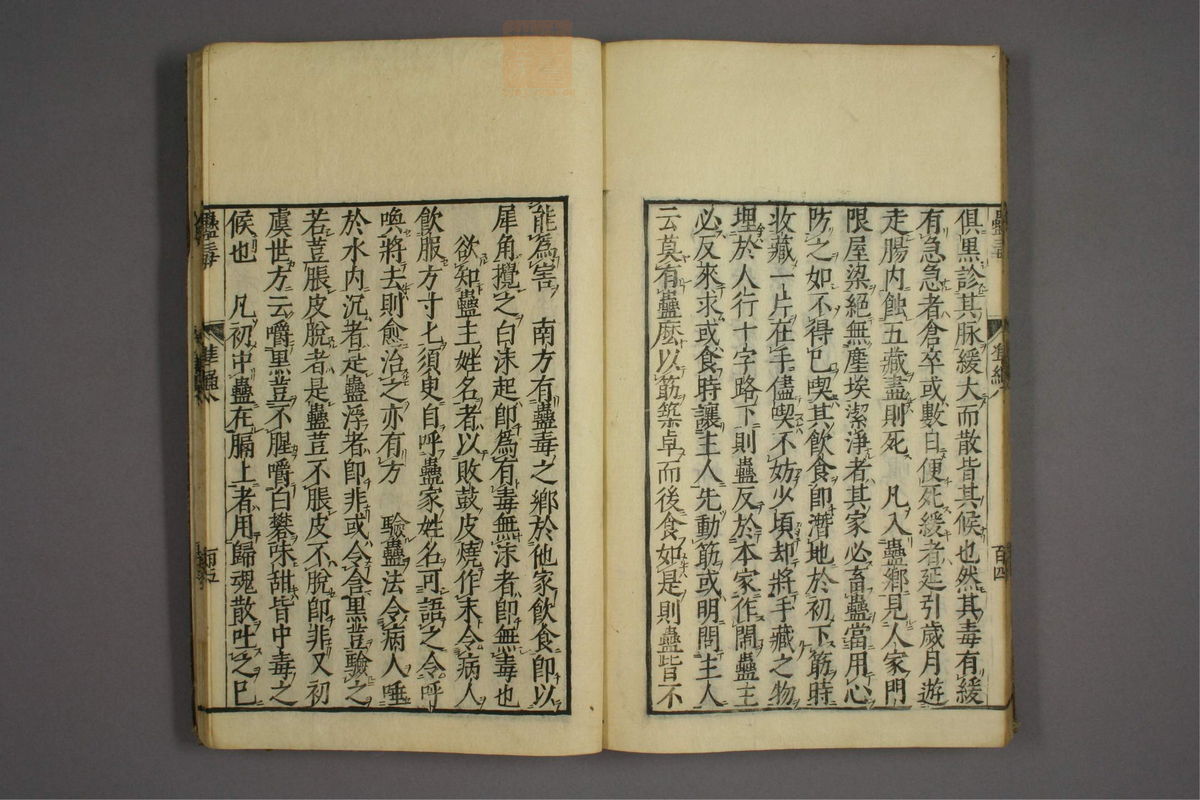 俱黒診其脉緩大而散皆其候也然其毒有緩
有急急者倉卒或數日便死緩者延引歲月遊
走腸内蝕五藏盡則死　凡入蠱鄉見人家門
限屋梁絕無塵埃潔淨者其家必畜蠱當用心
防之如不得已喫其飲食即潛地於初下筯時
收藏一片在手儘喫不妨少頃却將手藏之物
埋於人行十字路下則蠱反於本家作閙蠱主
必反來求或食時讓主人先動筯或明問主人
云莫有蠱麽以筯築卓而後食如是則蠱皆不
能為害　南方有蠱毒之鄉於他家飲食即以
犀角攪之白沫起即為有毒無沫者即無毒也
欲知蠱主姓名者以敗鼓皮燒作末令病人
飲服方寸匕須臾自呼蠱家姓名可語之令呼
喚將去則愈治之亦有方　驗蠱法令病人唾
於水内沉者是蠱浮者即非或令含黒荳驗之
若荳脹皮脫者是蠱荳不脹皮不脫即非又初
虞世方云嚼黒荳不腥嚼白礬味甜皆中毒之
候也　凡初中蠱在膈上者用歸魂散吐之已
蠱毒
百四
蠱毒